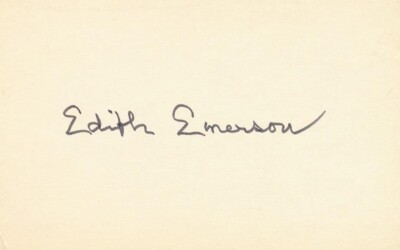 Edith Emerson